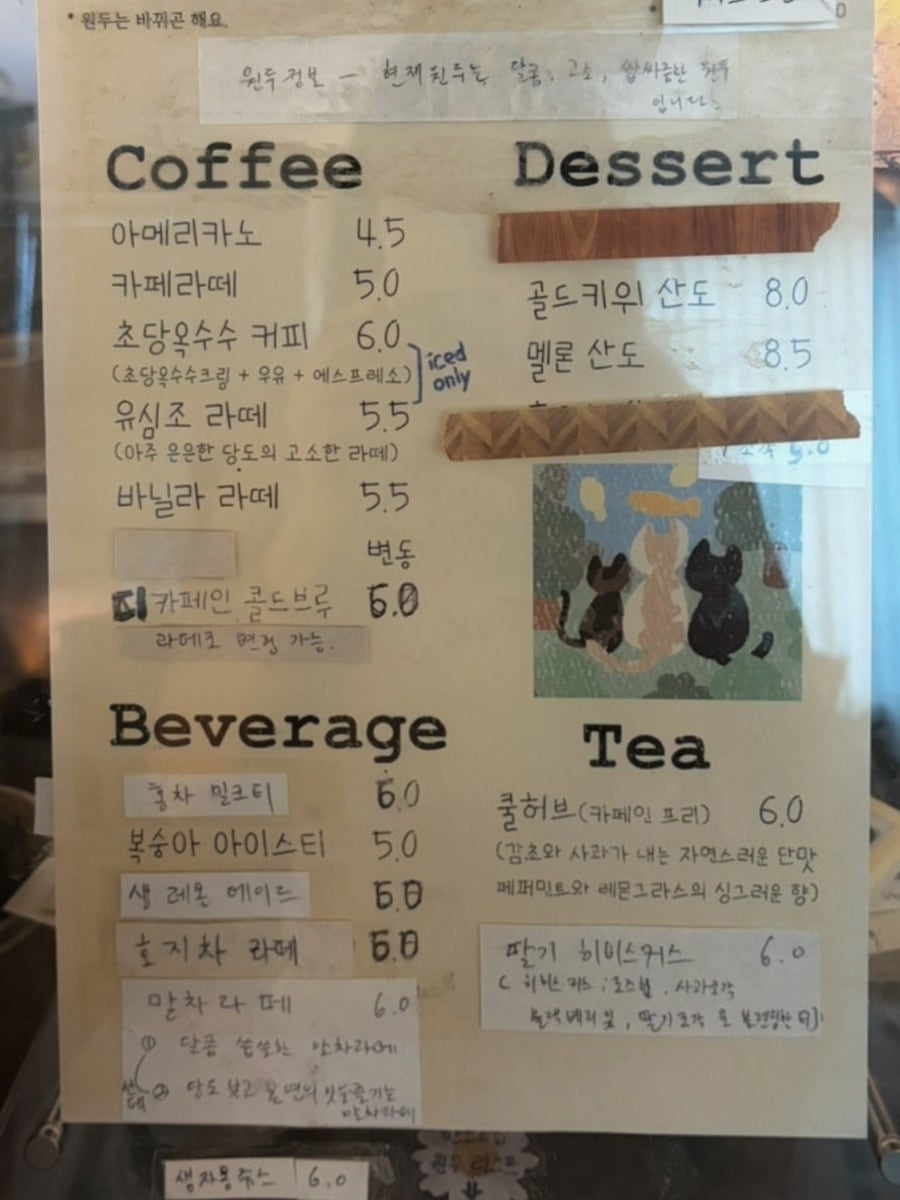 * 원두는 바뀌곤 해요.
원두정보 - 현재원두는 달콤, 고소, 쌉싸름한 원두
입니다.
Coffee
아메리카노 4.5
카페라떼 5.0
초당옥수수 커피 6.0
(초당옥수수크림 + 우유 + 에스프레소)
iced
only
유심조 라떼 5.5
(아주 은은한 당도의 고소한 라떼)
바닐라 라떼 5.5
변동
디카페인 콜드브루 6.0
라떼로 변경 가능.
Dessert
골드키위 산도 8.0
멜론 산도 8.5
Beverage
홍차 밀크티 6.0
복숭아 아이스티 5.0
생 레몬 에이드 6.0
호지차 라떼 6.0
말차라떼 6.0
① 달콤 쌉쌀한 말차라떼
② 당도 낮고 본연의 맛을 즐기는
말차라떼
Tea
쿨허브(카페인 프리) 6.0
(감초와 사과가 내는 자연스러운 단맛
페퍼민트와 레몬그라스의 싱그러운 향)
딸기 히비스커스 6.0
히비스커스, 로즈힙, 사과조각
블랙베리잎, 딸기조각 을 블렌딩한 티
생자몽쥬스 6.0
원두 리스트